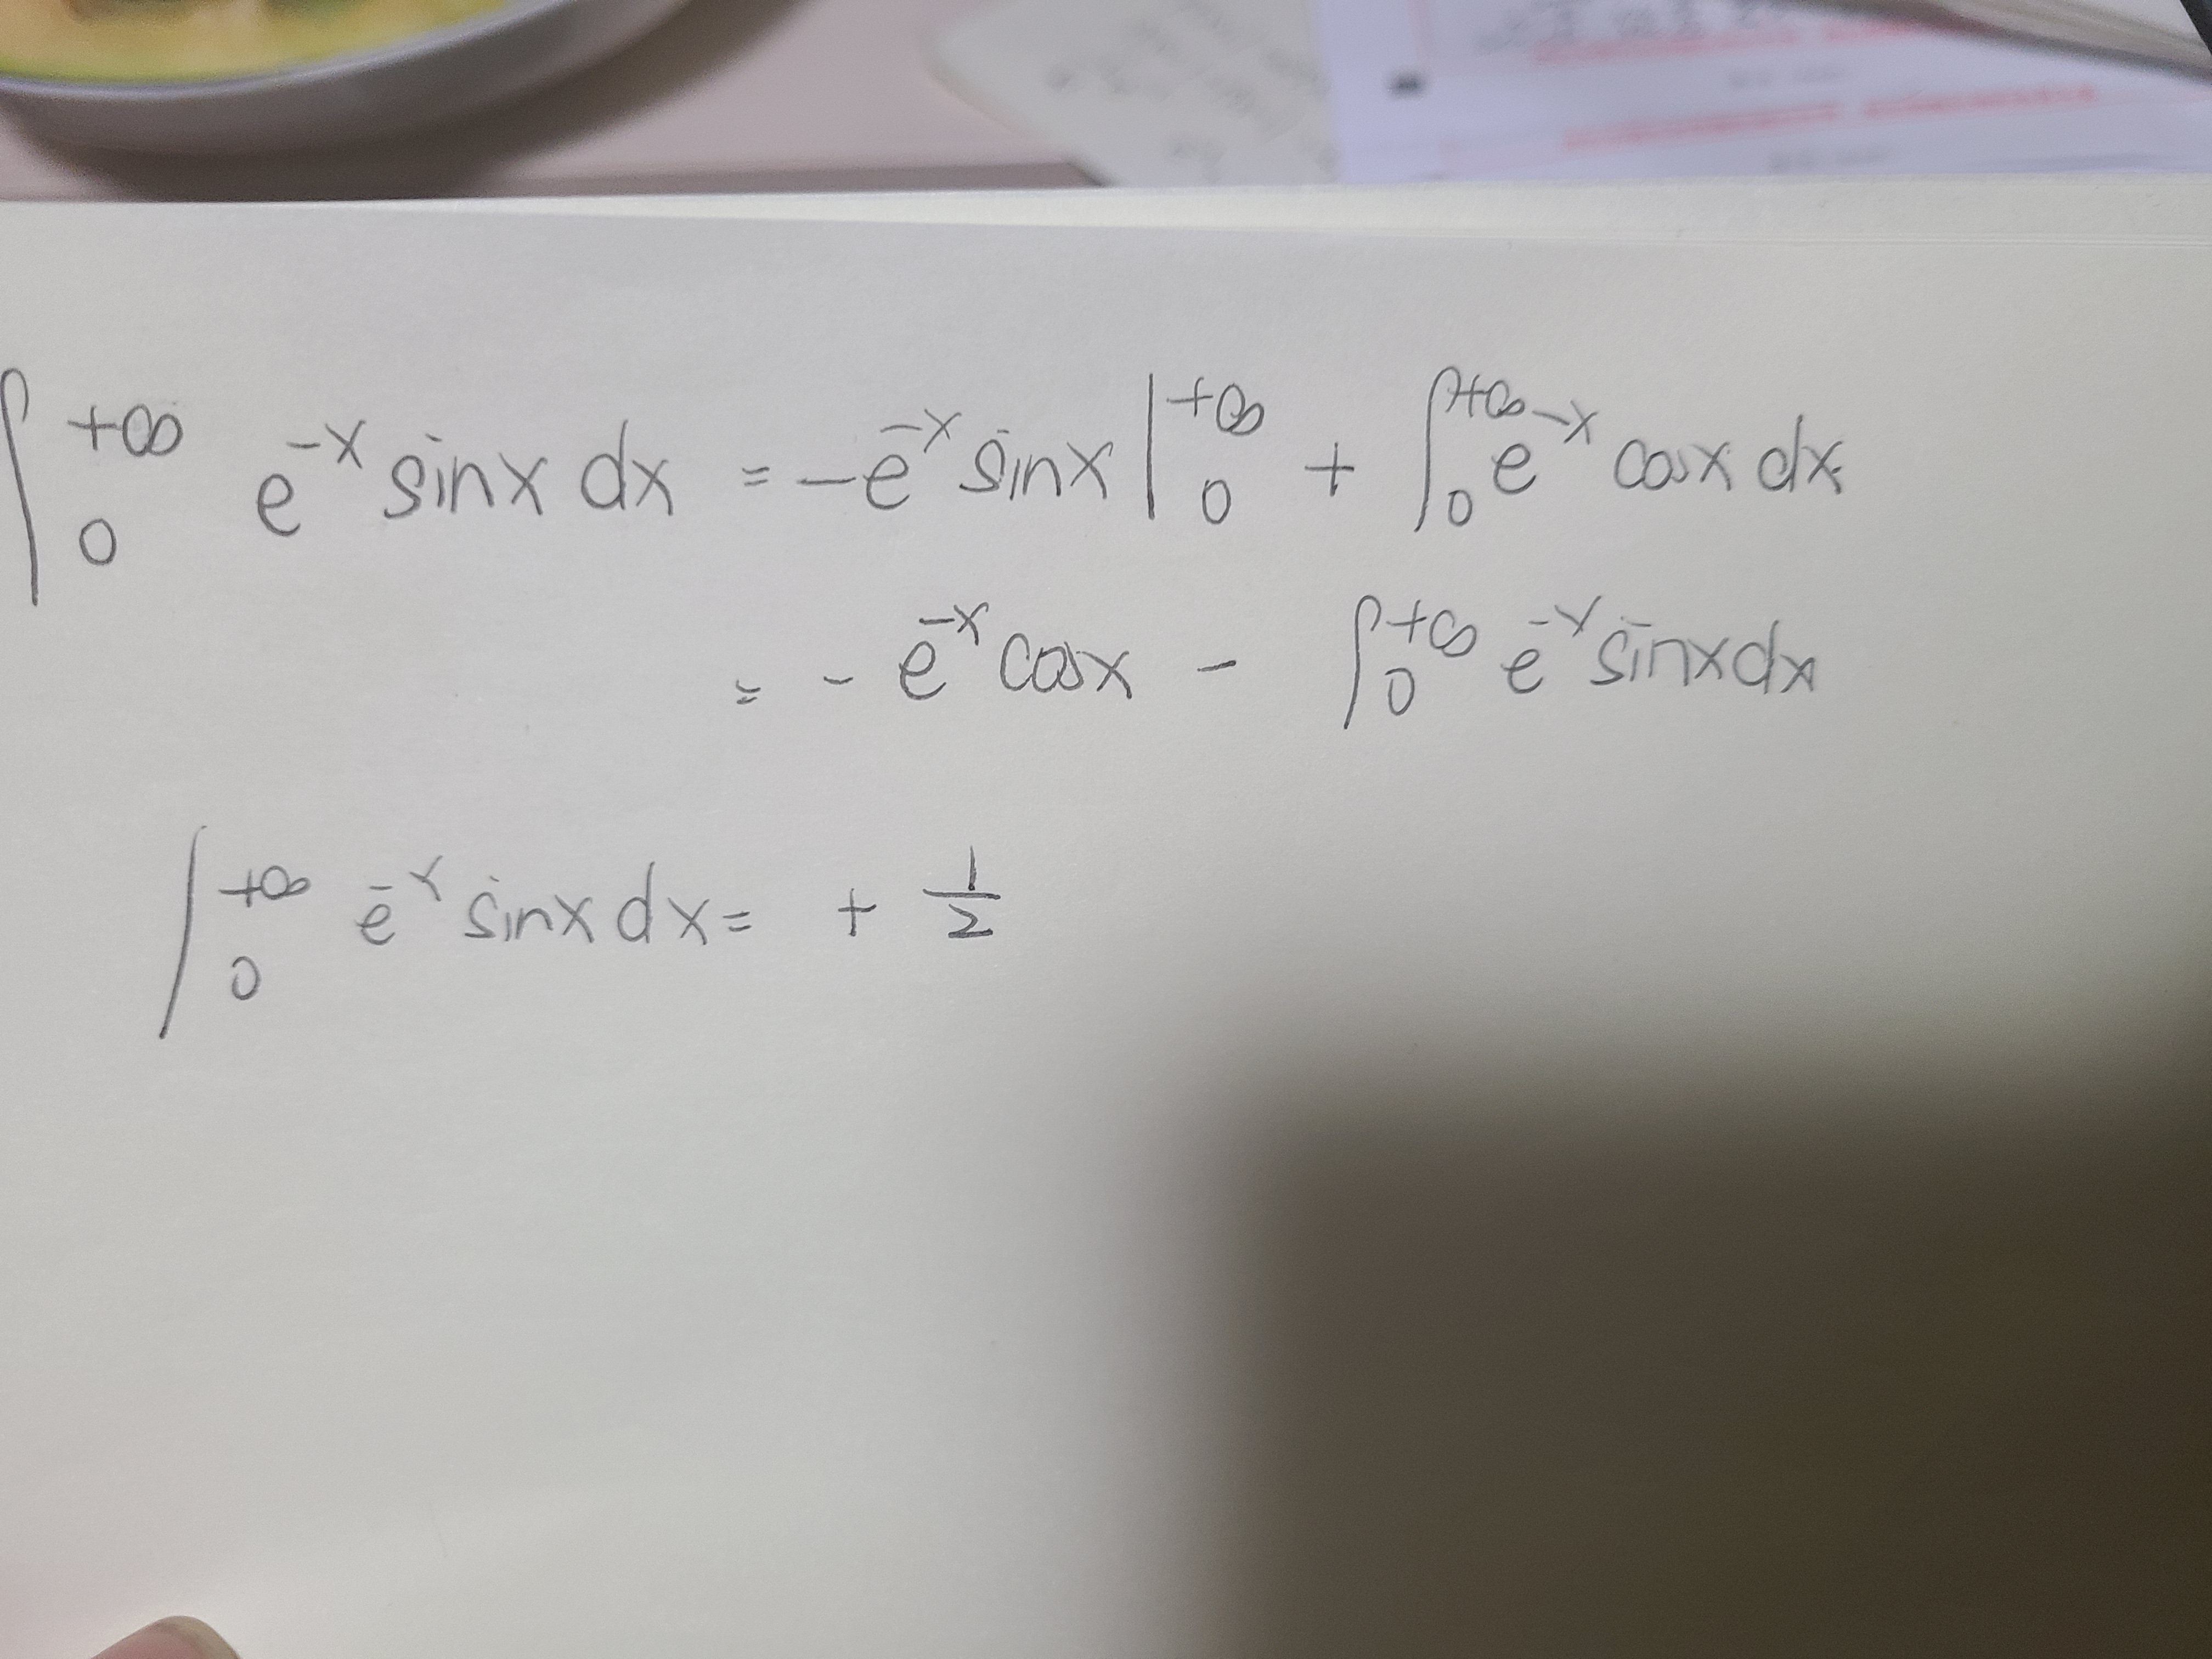 ∫₀^{+∞} e^{-x} sinx dx = -e^{-x} sinx |₀^{+∞} + ∫₀^{+∞} e^{-x} cosx dx
= - e^{-x} cosx - ∫₀^{+∞} e^{-x} sinx dx
∫₀^{+∞} e^{-x} sinx dx = + 1/2